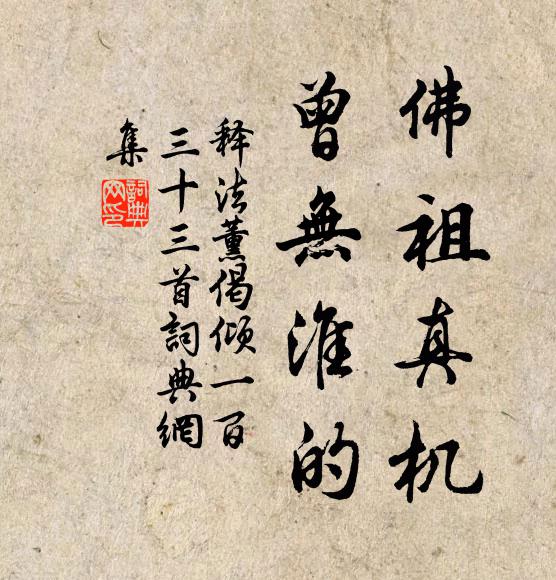 佛祖真机
曾無准的
释法薰偈倾一百
三十三首詞典網
集
詞典网印